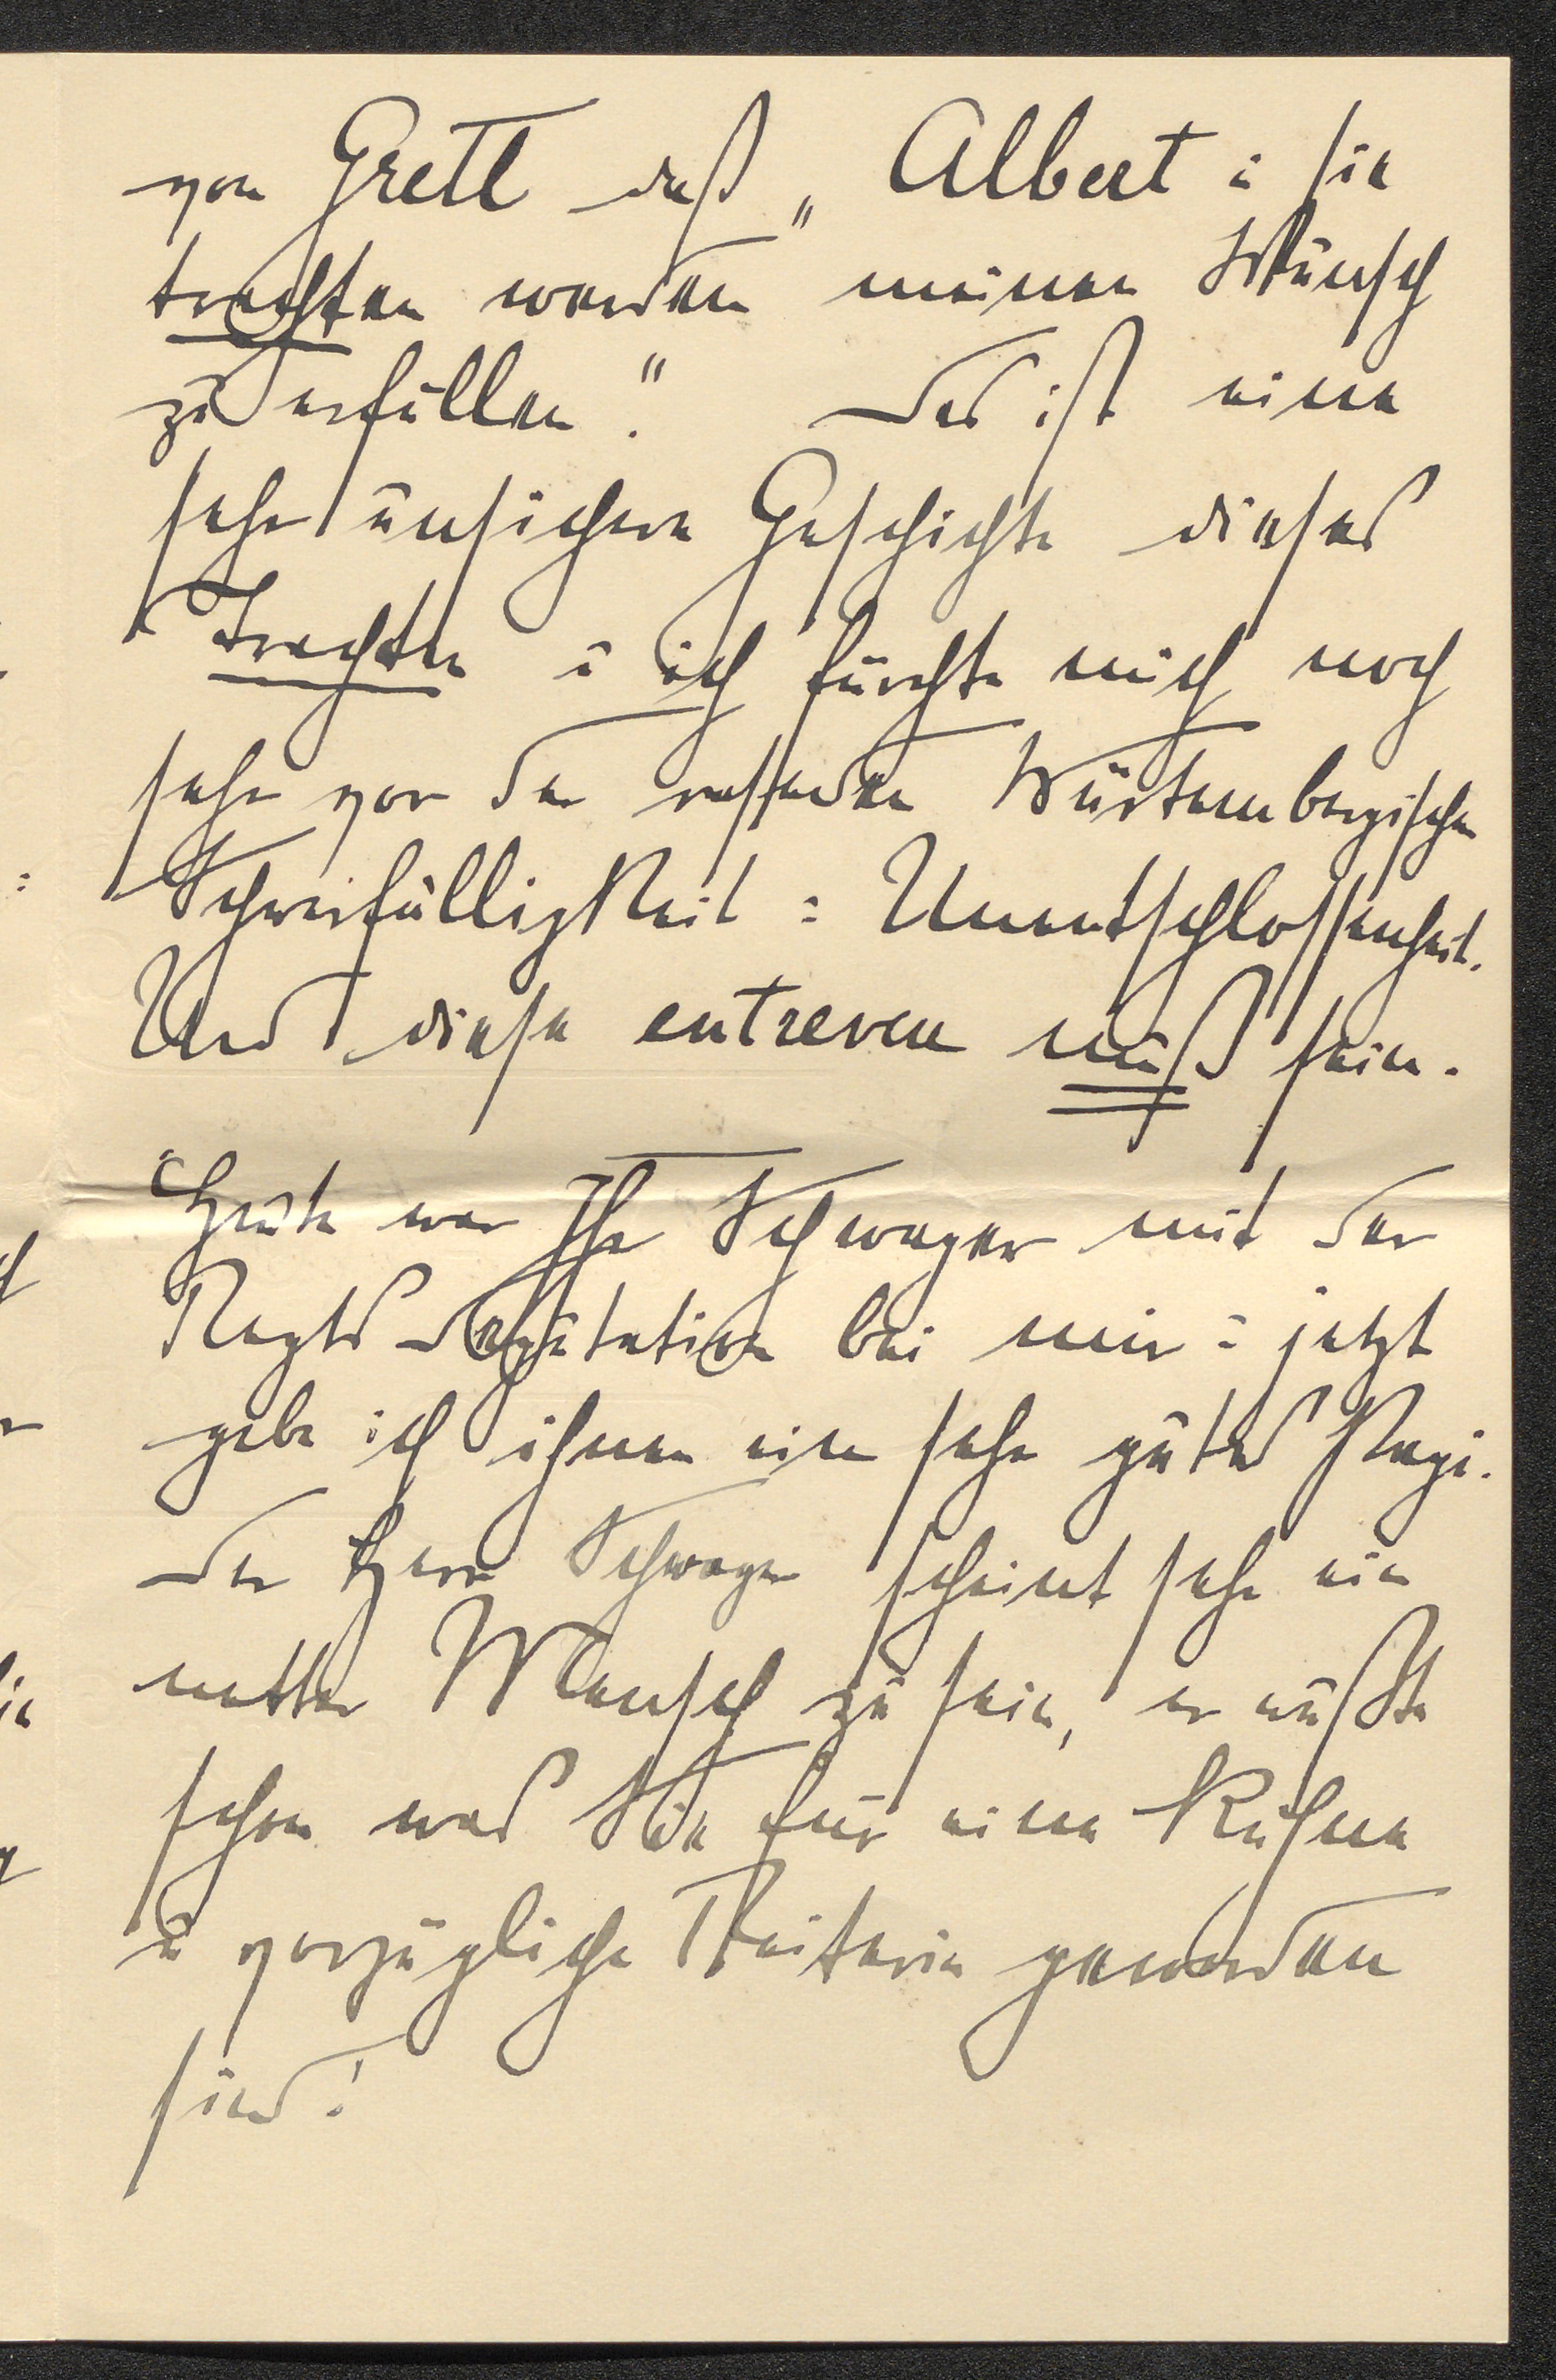 von Gretl daß „Albert u sie
trachten werden meinen Wunsch
zu erfüllen." Das ist eine
sehr unsichere Geschichte dieses
Trachten u ich fürchte mich noch
sehr vor der Würtembergischen
Schwerfälligkeit u Unentschlossenheit.
Und diese entrevue muß sein.
Heute war Ihr Schwager mit der
Regts Deputation bei mir u jetzt
gebe ich ihnen ein sehr gutes Regi.
Der Herr Schwager scheint sehr ein
netter Mensch zu sein, er wußte
schon was Sie für eine kühne
u vorzügliche Reiterin geworden
sind!